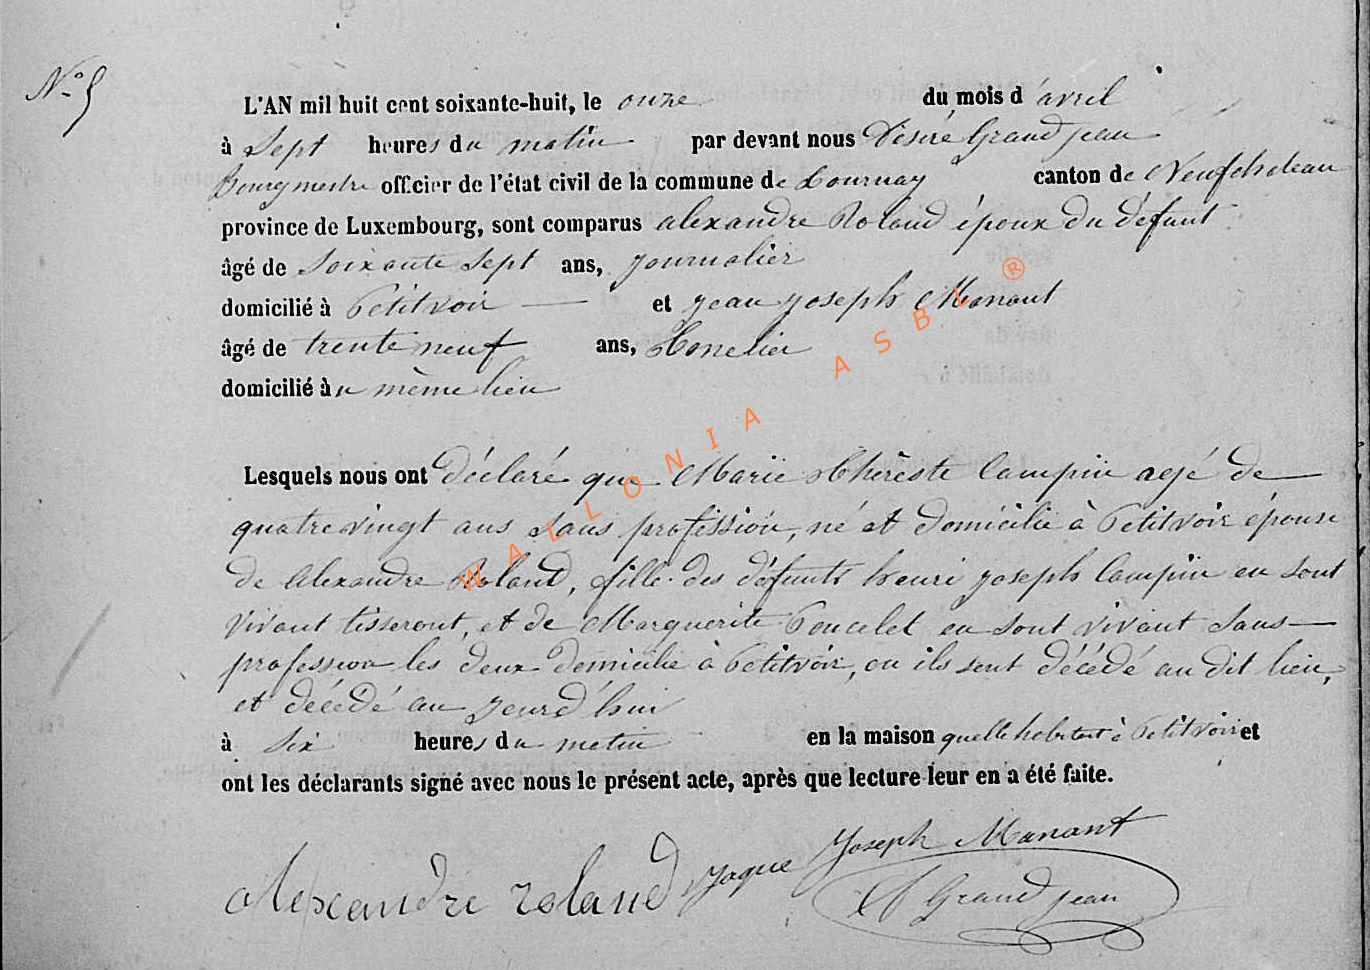 N° 5
L'AN mil huit cent soixante-huit, le onze du mois d'avril
à Sept heures du matin par devant nous Désiré Grand jean
Bourgmestre officier de l'état civil de la commune de Tournay canton de Neufchateau
province de Luxembourg, sont comparus alexandre Roland époux du défunt
âgé de Soixante Sept ans, journalier
domicilié à Petitvoir et jean joseph Manant
âgé de trente neuf ans,
domicilié àu mème lieu
Lesquels nous ont déclaré que Marie Thèreste Campin agé de
quatre vingt ans Sans profession, né et domicilié à Petitvoir épouse
de alexandre Roland, fille des défunts henri joseph Campin en Sont
vivant tisseront, et de Marguerite Poncelet en Sont vivant Sans
profession les deux domicilié à Petitvoir, ou ils sont décédé au dit lieu,
et décédé au jourd'hui
à Six heures du matin en la maison quelle habitait à Petitvoir et
ont les déclarants signé avec nous le présent acte, après que lecture leur en a été faite.
alexandre roland Jaque Joseph Manant
Grand jean
WALLONIA ASBL ®